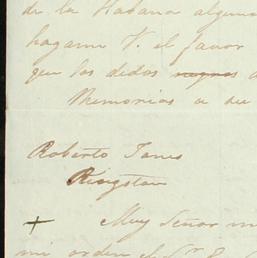 de la Habana alguna
hagame V. el favor
que los dichos negros
Memorias a su
Roberto Jones
Kingston
+ Muy Señor m
mi orden el Sr